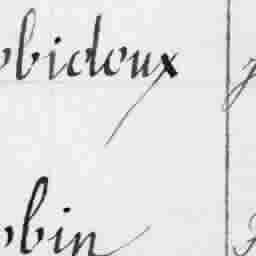 obidoux
obin